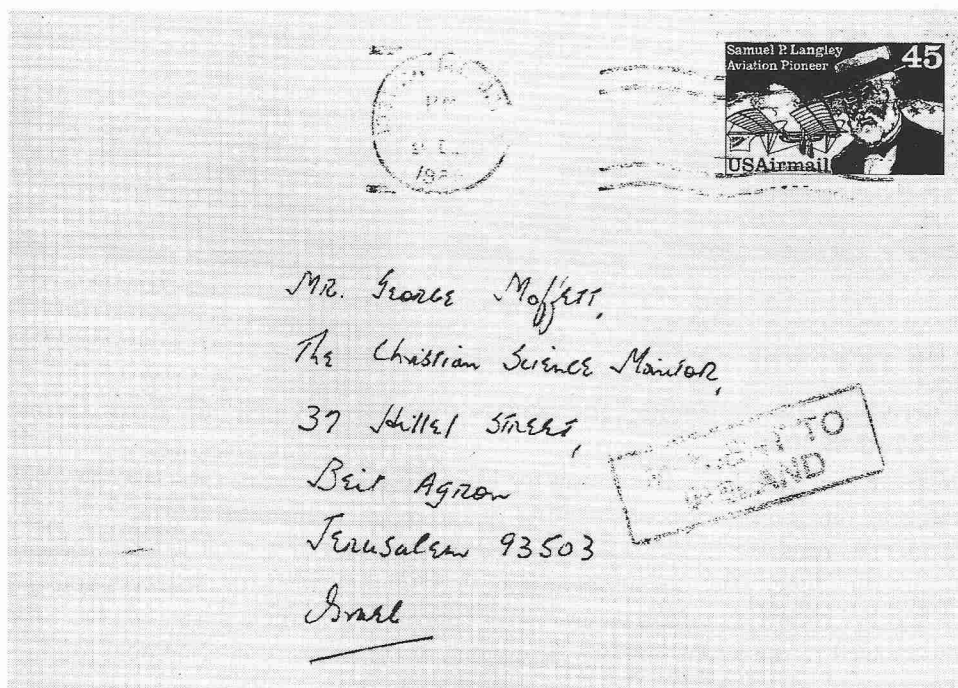 Samuel P. Langley
Aviation Pioneer
45
USAirmail
PM
19
MR. GEORGE Moffett,
The Christian Science Monitor,
37 Hillel STREET,
Beit Agron
Jerusalem 93503
Israel
TO